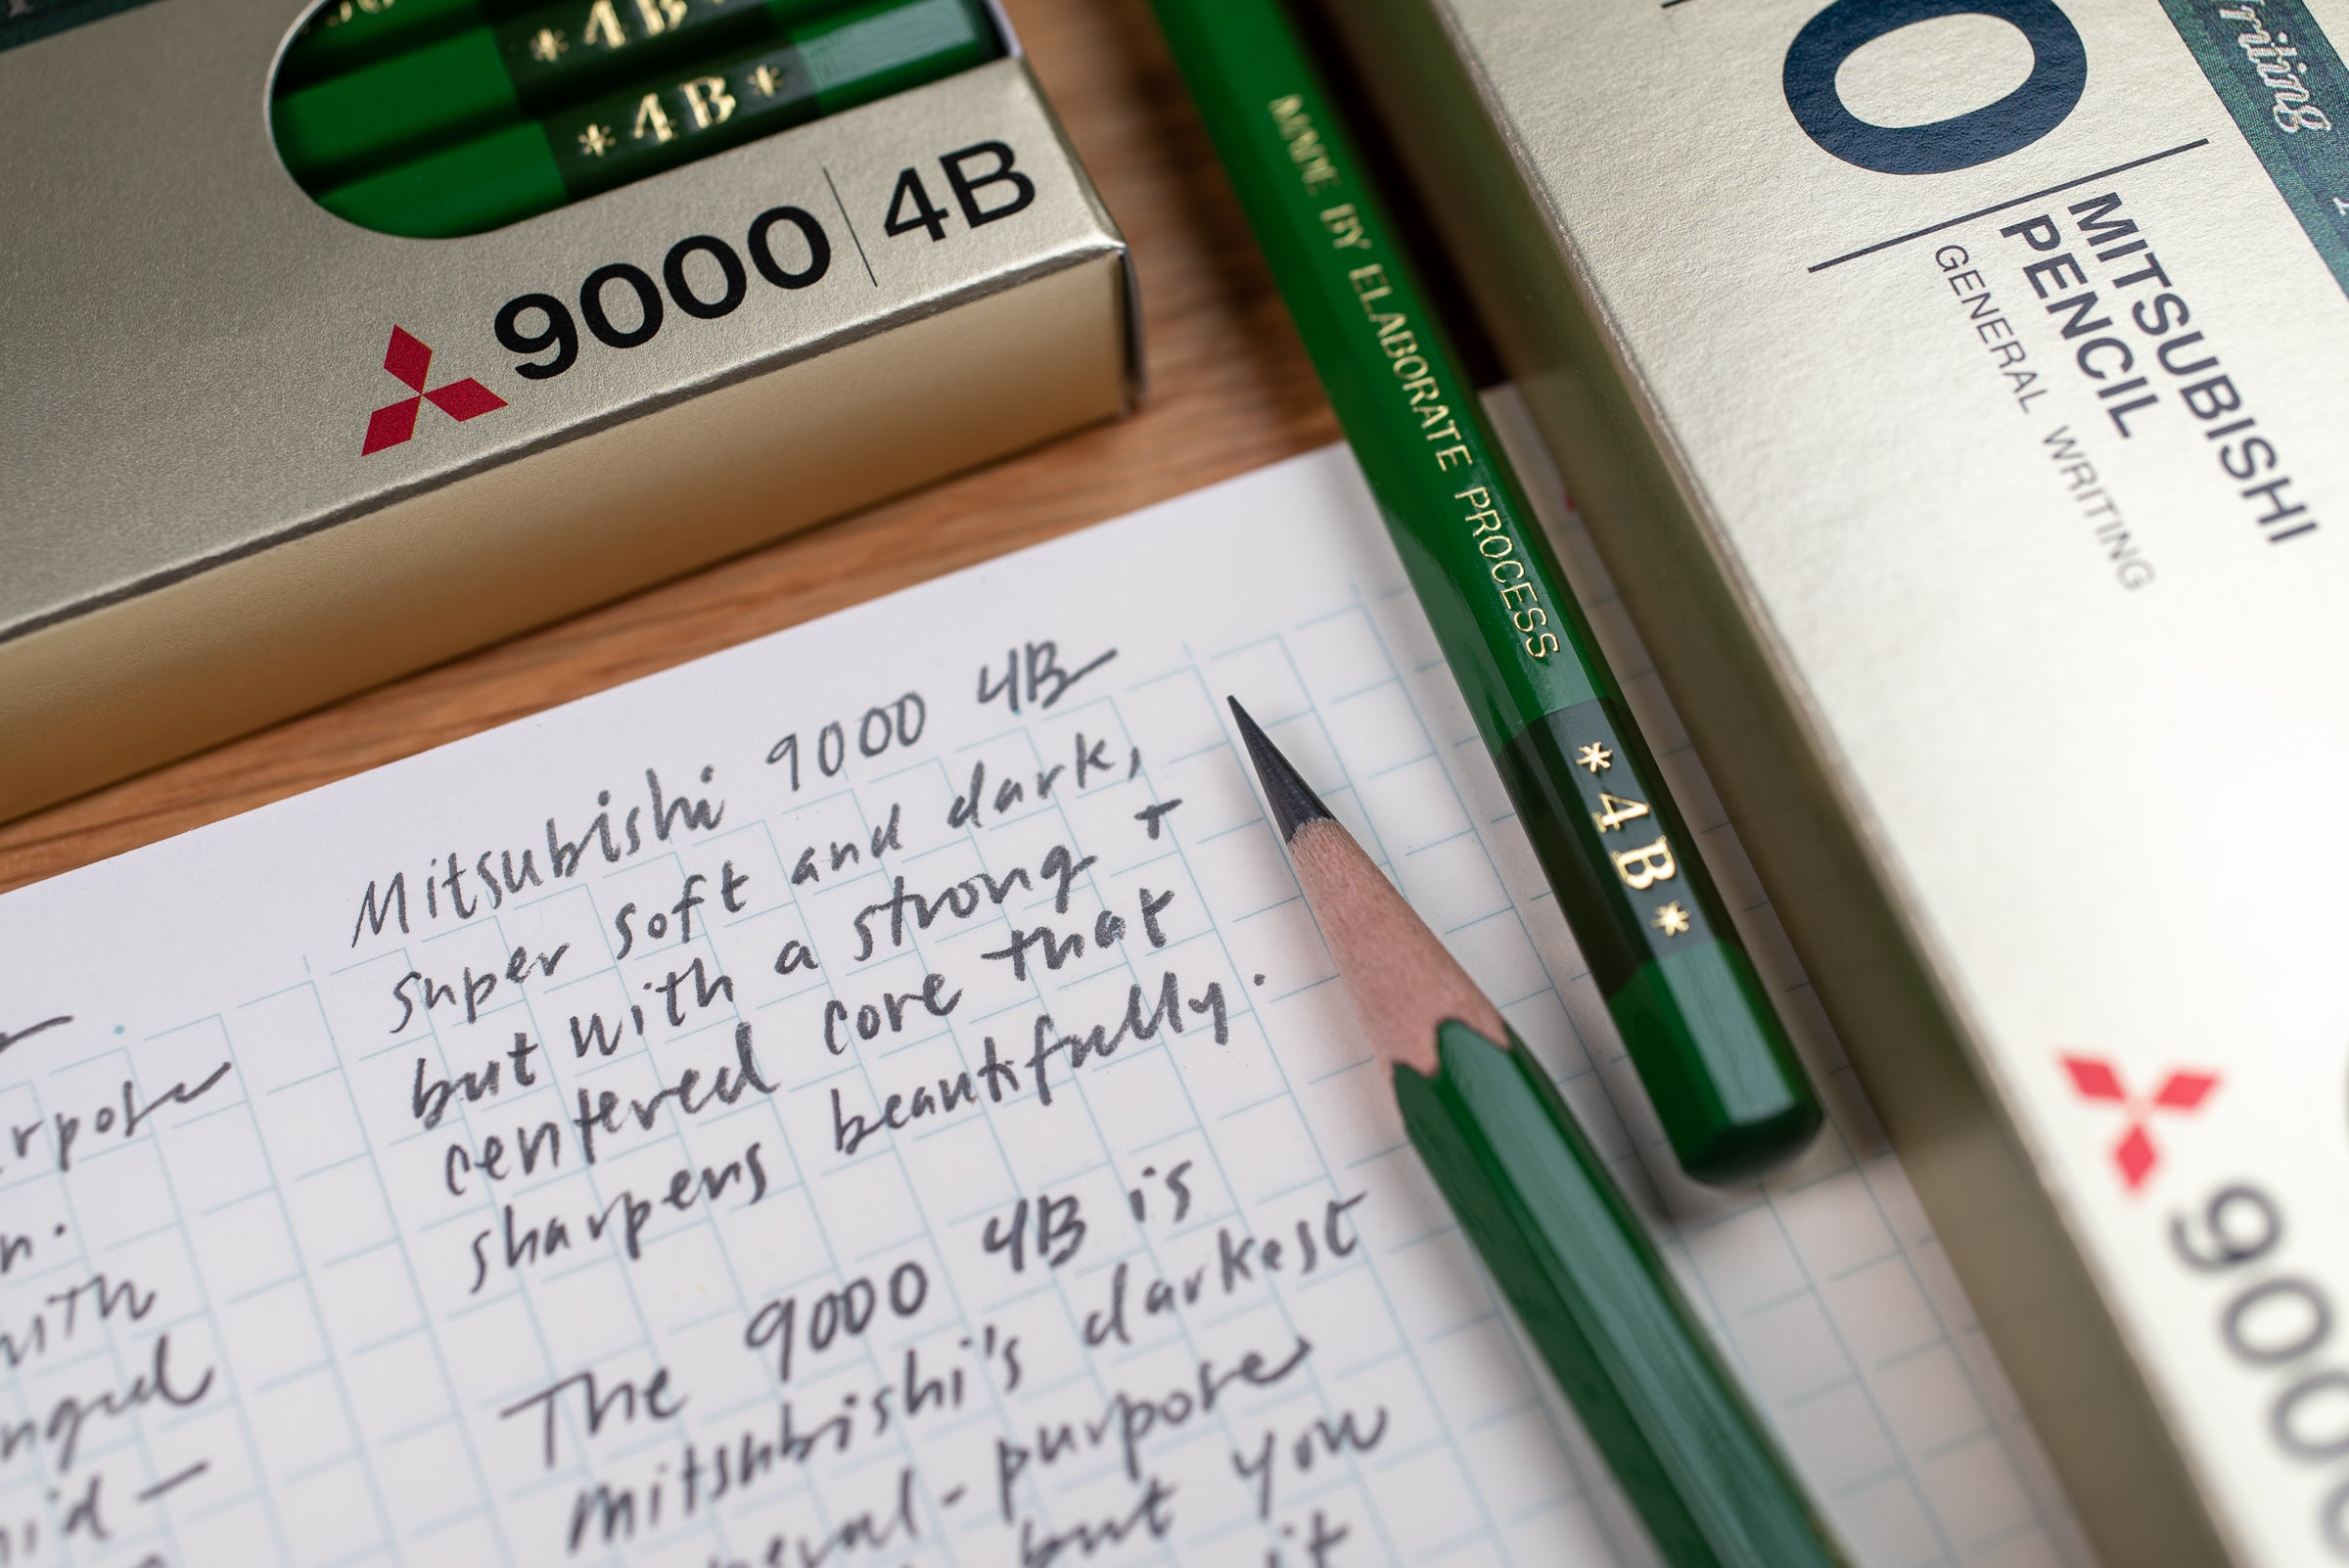 *4B*
*4B*
9000 4B
MADE BY ELABORATE PROCESS
*4B*
0
MITSUBISHI
PENCIL
GENERAL WRITING
Writing
900
Mitsubishi 9000 4B
Super soft and dark,
but with a strong +
centered core that
sharpens beautifully.
The 9000 4B is
Mitsubishi's darkest
-purpose
but you
it